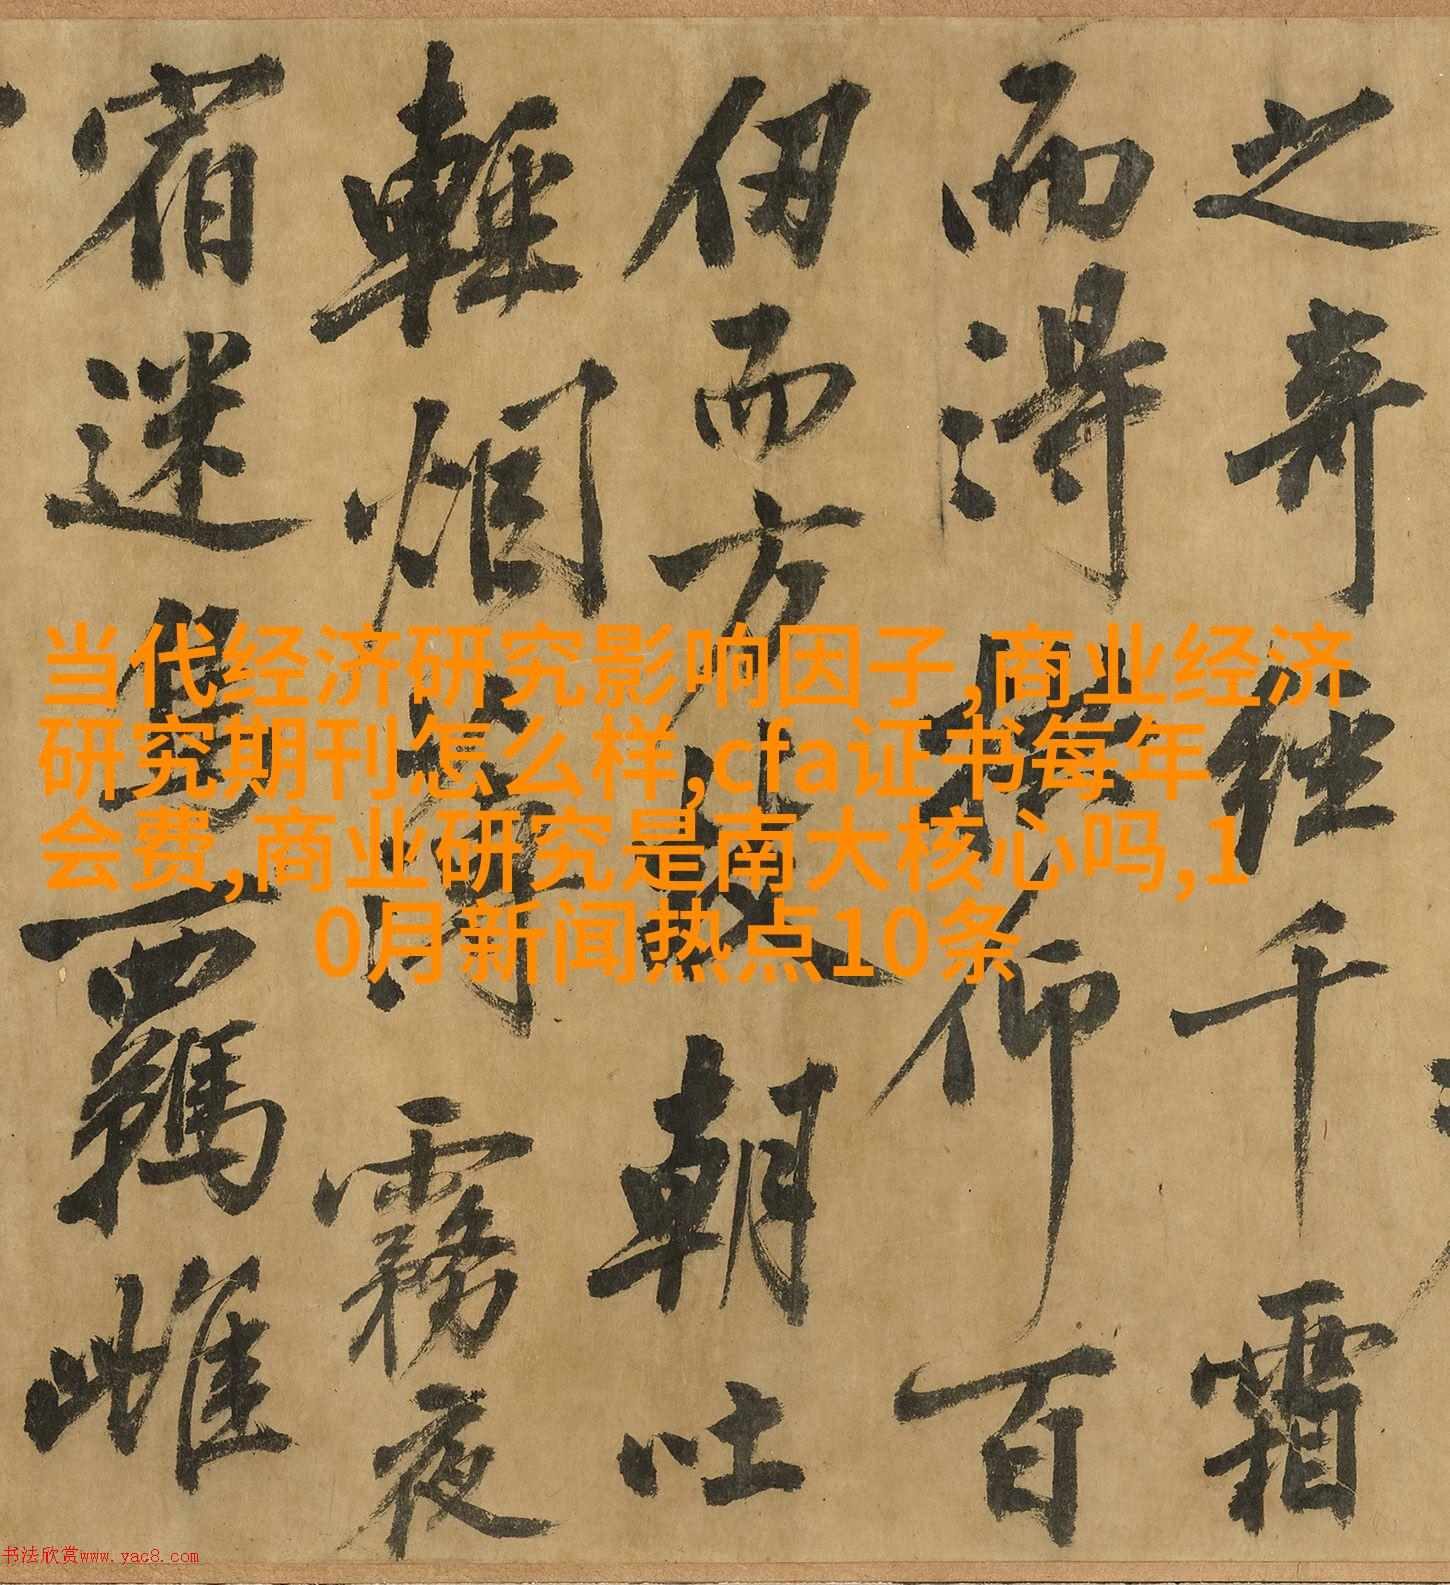 之奇經千霜
而得拱仰百
仞而方枝朝吐
輕烟薄霧夜
宿迷鳥羈雌
当代经济研究影响因子,商业经济
研究期刊怎么样,cfa证书每年
会费,商业研究是南大核心吗,1
0月新闻热点10条
书法欣赏www.yac8.com